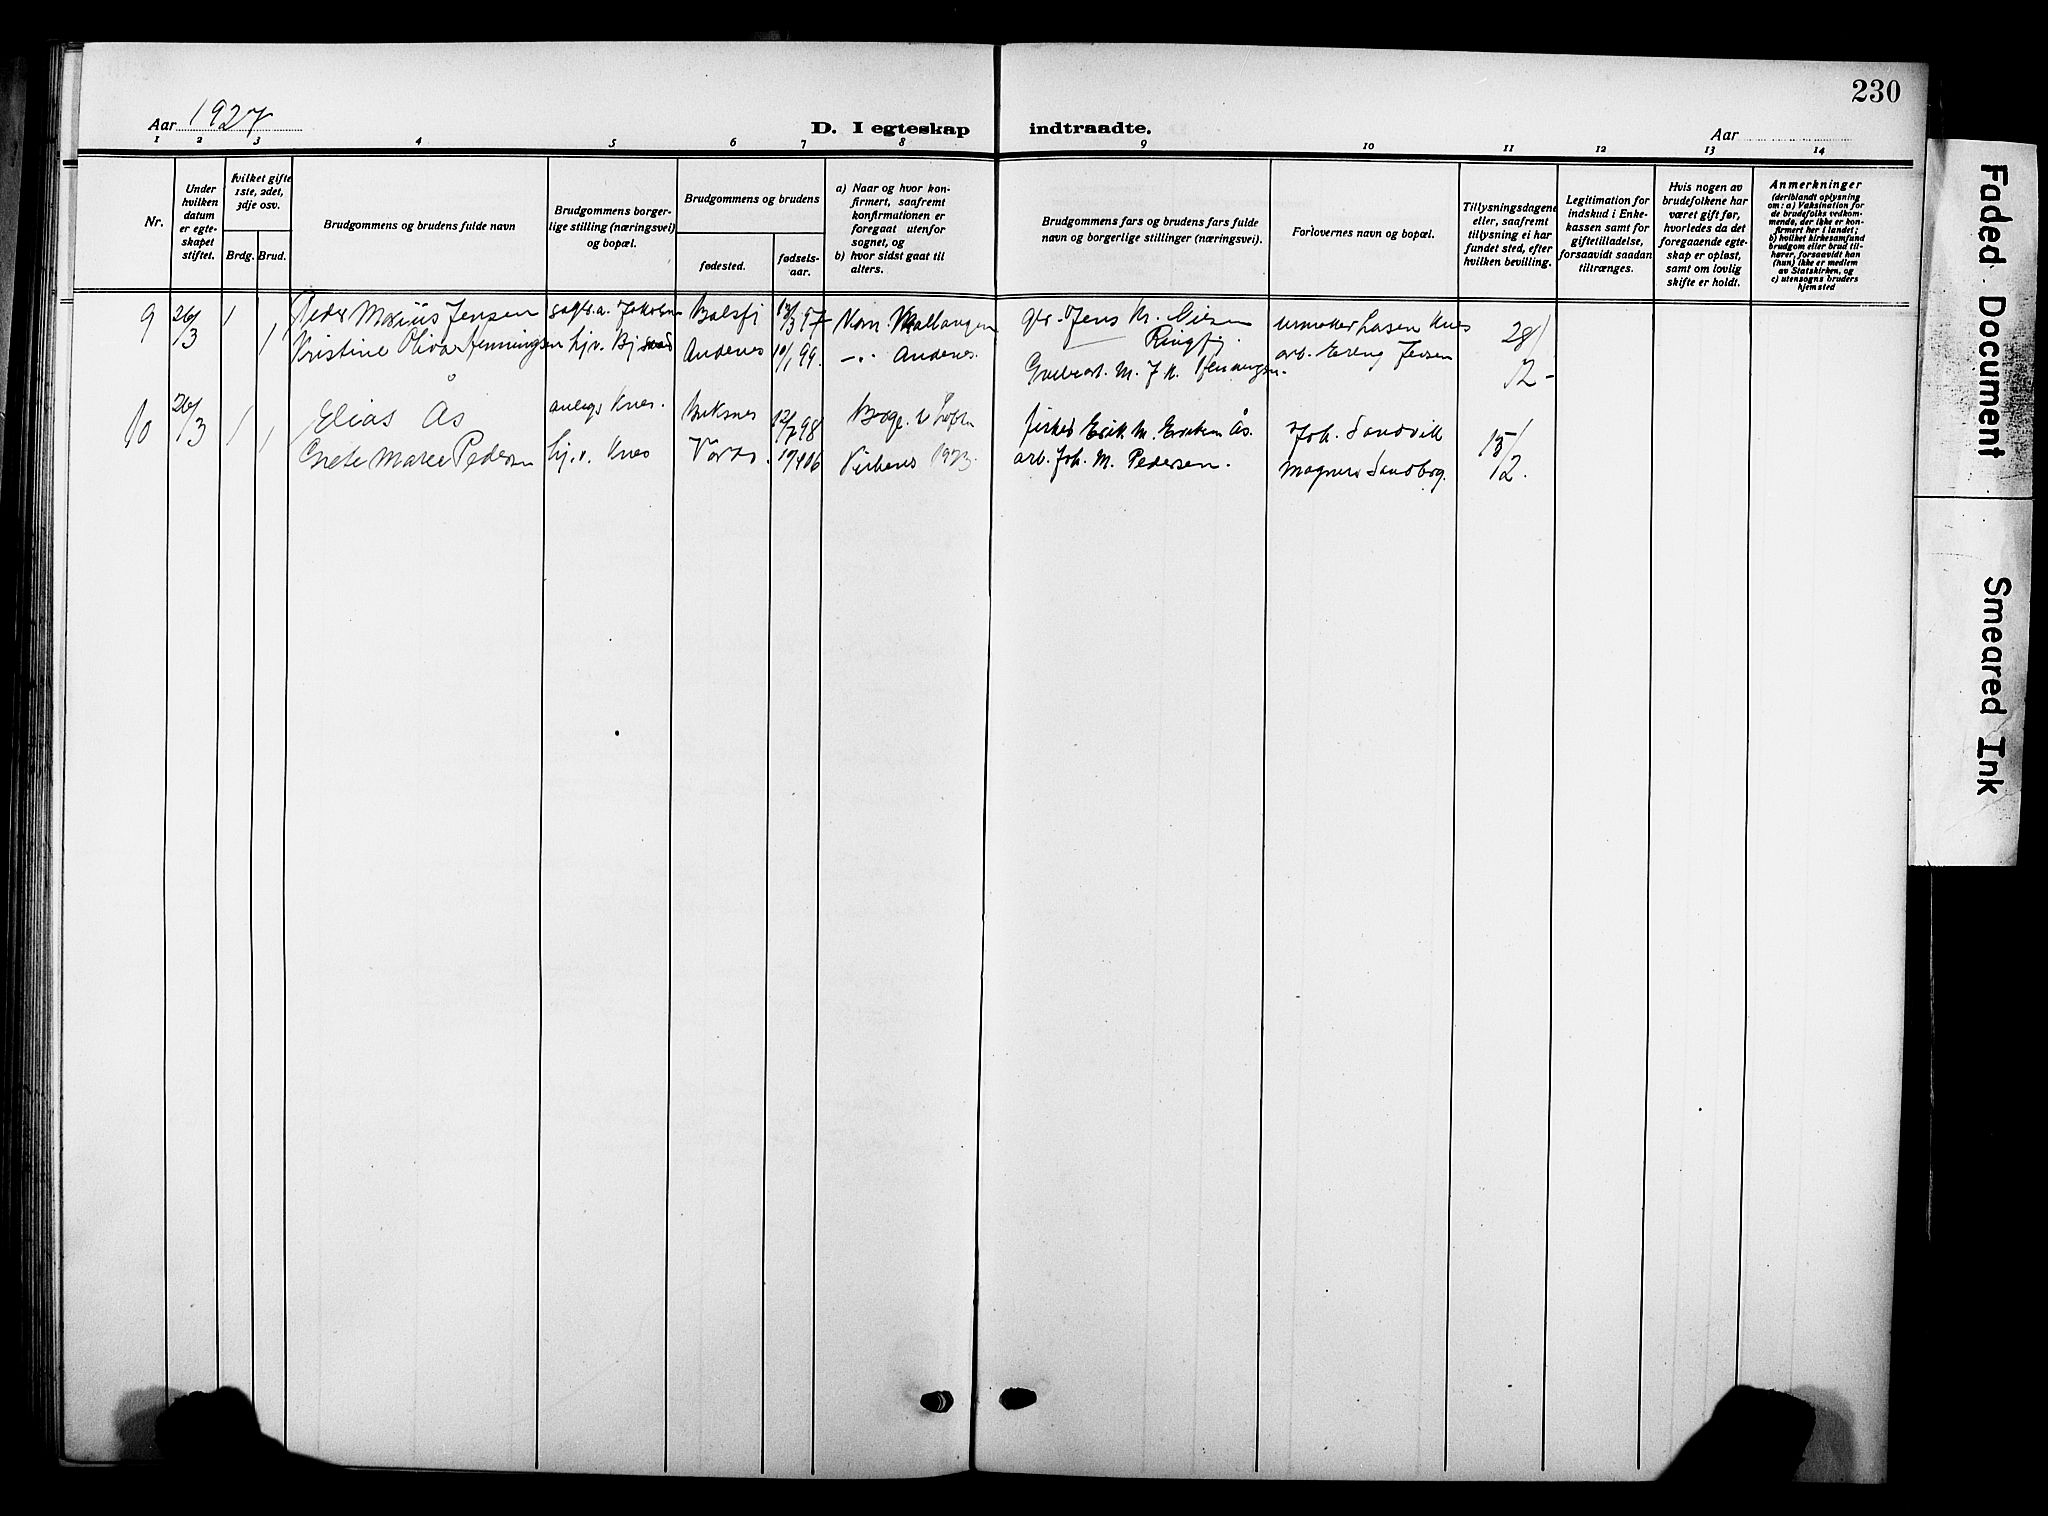 230
Aar 1927
D. I egteskap indtraadte.
Aar
1 2 3 4 5 6 7 8 9 10 11 12 13 14
Nr.
Under hvilken datum er egteskapet stiftet.
hvilket gifte 1ste, 2det, 3dje osv.
Brdg. Brud.
Brudgommens og brudens fulde navn
Brudgommens borgerlige stilling (næringsvei) og bopæl.
Brudgommens og brudens
fødested.
fødselsaar.
a) Naar og hvor konfirmert, saafremt konfirmationen er foregaat utenfor sognet, og
b) hvor sidst gaat til alters.
Brudgommens fars og brudens fars fulde navn og borgerlige stillinger (næringsvei).
Forlovernes navn og bopæl.
Tillysningsdagene eller, saafremt tillysning ei har fundet sted, efter hvilken bevilling.
Legitimation for indskud i Enkekassen samt for giftetilladelse, forsaavidt saadan tiltrænges.
Hvis nogen av brudefolkene har været gift før, hvorledes da det foregaaende egteskap er opløst, samt om lovlig skifte er holdt.
Anmerkninger (deriblandt oplysning om: a) Vaksination for de brudefolks vedkommende, der ikke er konfirmert her i landet; b) hvilket kirkesamfund brudgom eller brud tilhører, forsaavidt han (hun) ikke er medlem av Statskirken, og c) utensogns bruders hjemsted
9 26/3 1 Peder Marius Jensen Balsfj 97 Malangen Jens Kr. Ringfj. 28/
1 Kristine Oliva Henningsen hj.v. Andenes 10/1 99. -"- Andenes. arb. Jensen 12 -
10 26/3 1 Elias Ås Knes. Buksnes 12/7 98 fisker Erik M. Ås. Joh. Sandvik 15/
1 Grete Marie Pedersen hj.v. Knes Vardø. 06 1923. arb. Joh. M. Pedersen. Magnus Sandberg. 2.
Faded Document
Smeared Ink